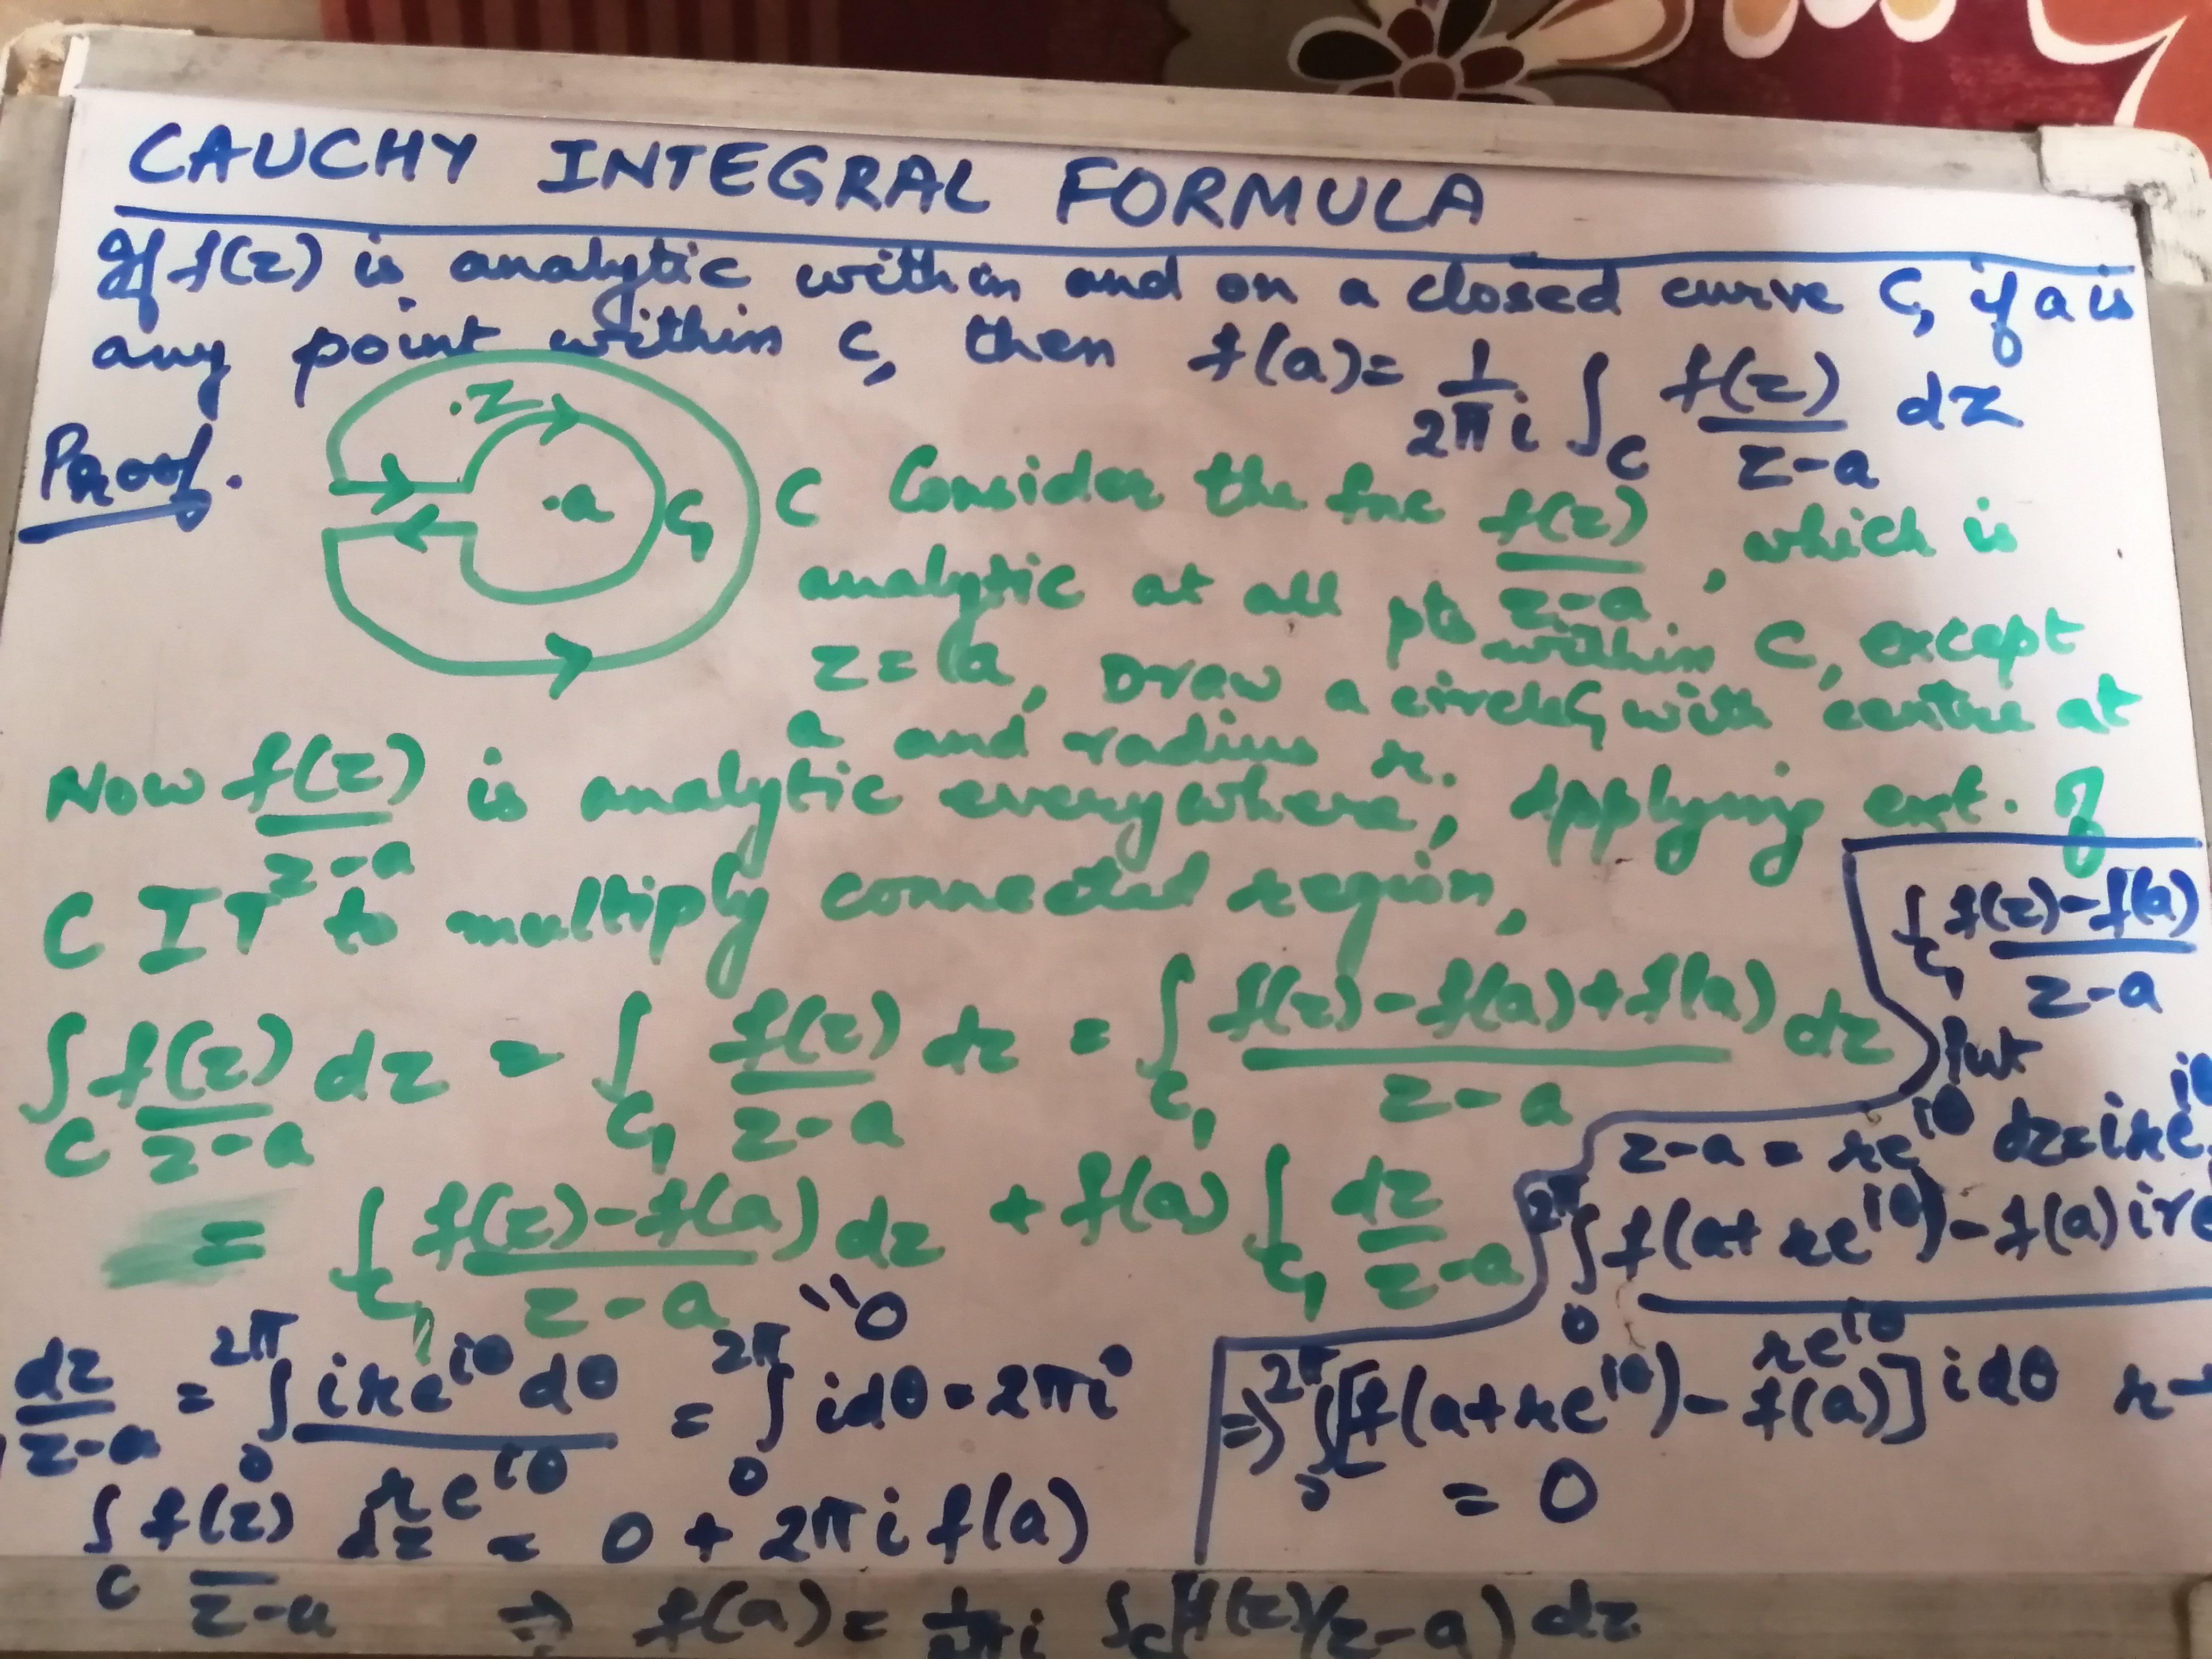 CAUCHY INTEGRAL FORMULA
If f(z) is analytic within and on a closed curve C, if a is
any point within C, then f(a) = 1/2πi ∫_C f(z)/z-a dz
Proof.
.z
.a
C₁
C
Consider the fnc f(z)/z-a, which is
analytic at all pts within C, except
z = a, Draw a circle C₁ with centre at
a and radius r.
Now f(z)/z-a is analytic everywhere, Applying ext. of
CIT to multiply connected region,
∫_C f(z)/z-a dz = ∫_C₁ f(z)/z-a dz = ∫_C₁ f(z)-f(a)+f(a)/z-a dz
= ∫_C₁ f(z)-f(a)/z-a dz + f(a) ∫_C₁ dz/z-a
"0
dz/z-a = ∫_0^2π ire^iθ dθ/re^iθ = ∫_0^2π idθ = 2πi
∫_C f(z)/z-a dz = 0 + 2πi f(a)
⇒ f(a) = 1/2πi ∫_C (f(z)/z-a) dz
∫_C₁ f(z)-f(a)/z-a
Put
z-a = re^iθ dz = ire^iθ
∫_0^2π f(a+re^iθ)-f(a) ire/re^iθ
⇒ ∫_0^2π [f(a+re^iθ)-f(a)] idθ r→
= 0